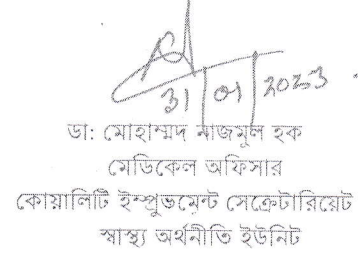 31/01/2023
ডা: মোহাম্মদ নাজমুল হক
মেডিকেল অফিসার
কোয়ালিটি ইম্প্রুভমেন্ট সেক্রেটারিয়েট
স্বাস্থ্য অর্থনীতি ইউনিট